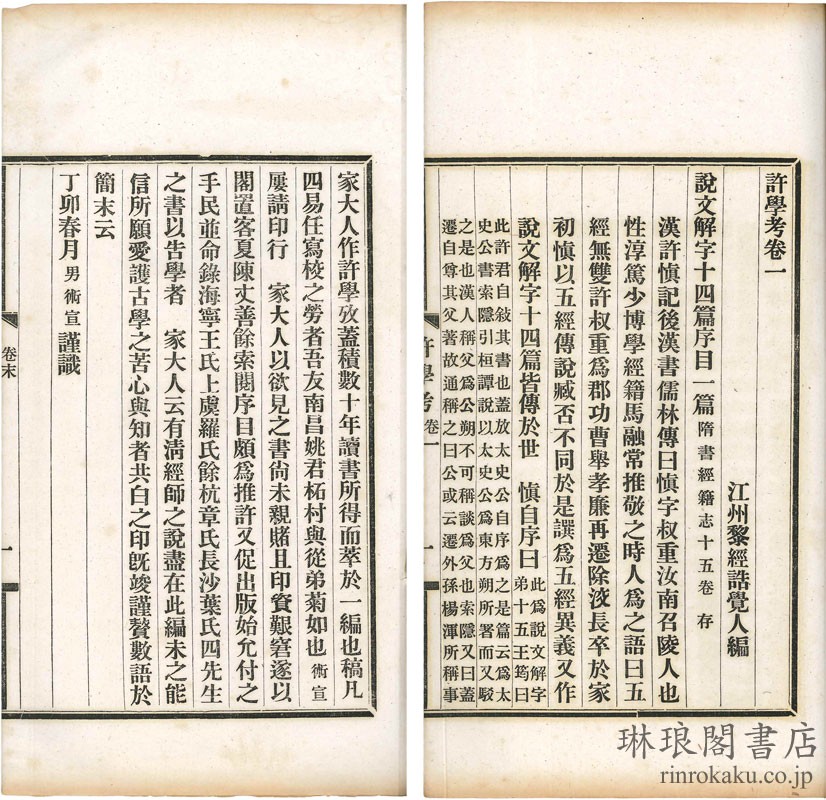 許學考卷一
江州黎經誥覺人編
說文解字十四篇序目一篇 隋書經籍志十五卷 存
漢許愼記後漢書儒林傳曰愼字叔重汝南召陵人也
性淳篤少博學經籍馬融常推敬之時人爲之語曰五
經無雙許叔重爲郡功曹舉孝廉再遷除洨長卒於家
初愼以五經傳說臧否不同於是譔爲五經異義又作
說文解字十四篇皆傳於世 愼自序曰 此爲說文解字
弟十五王筠曰
此許君自敍其書也蓋放太史公自序爲之是篇云爲太
史公書索隱引桓譚說以太史公爲東方朔所署而又駁
之是也漢人稱父爲公朔不可稱談爲父也索隱又曰蓋
遷自尊其父著故通稱之曰公或云遷外孫楊渾所稱事
許學考 卷一
一
家大人作許學攷蓋積數十年讀書所得而萃於一編也稿凡
四易任寫校之勞者吾友南昌姚君柘村與從弟菊如也 術宣
屢請印行 家大人以欲見之書尙未親賭且印資艱窘遂以
閣置客夏陳丈善餘索閱序目頗爲推許又促出版始允付之
手民並命錄海寧王氏上虞羅氏餘杭章氏長沙葉氏四先生
之書以告學者 家大人云有淸經師之說盡在此編未之能
信所願愛護古學之苦心與知者共白之印旣竣謹贅數語於
簡末云
丁卯春月 男術宣 謹識
卷末
一
琳琅閣書店
rinrokaku.co.jp